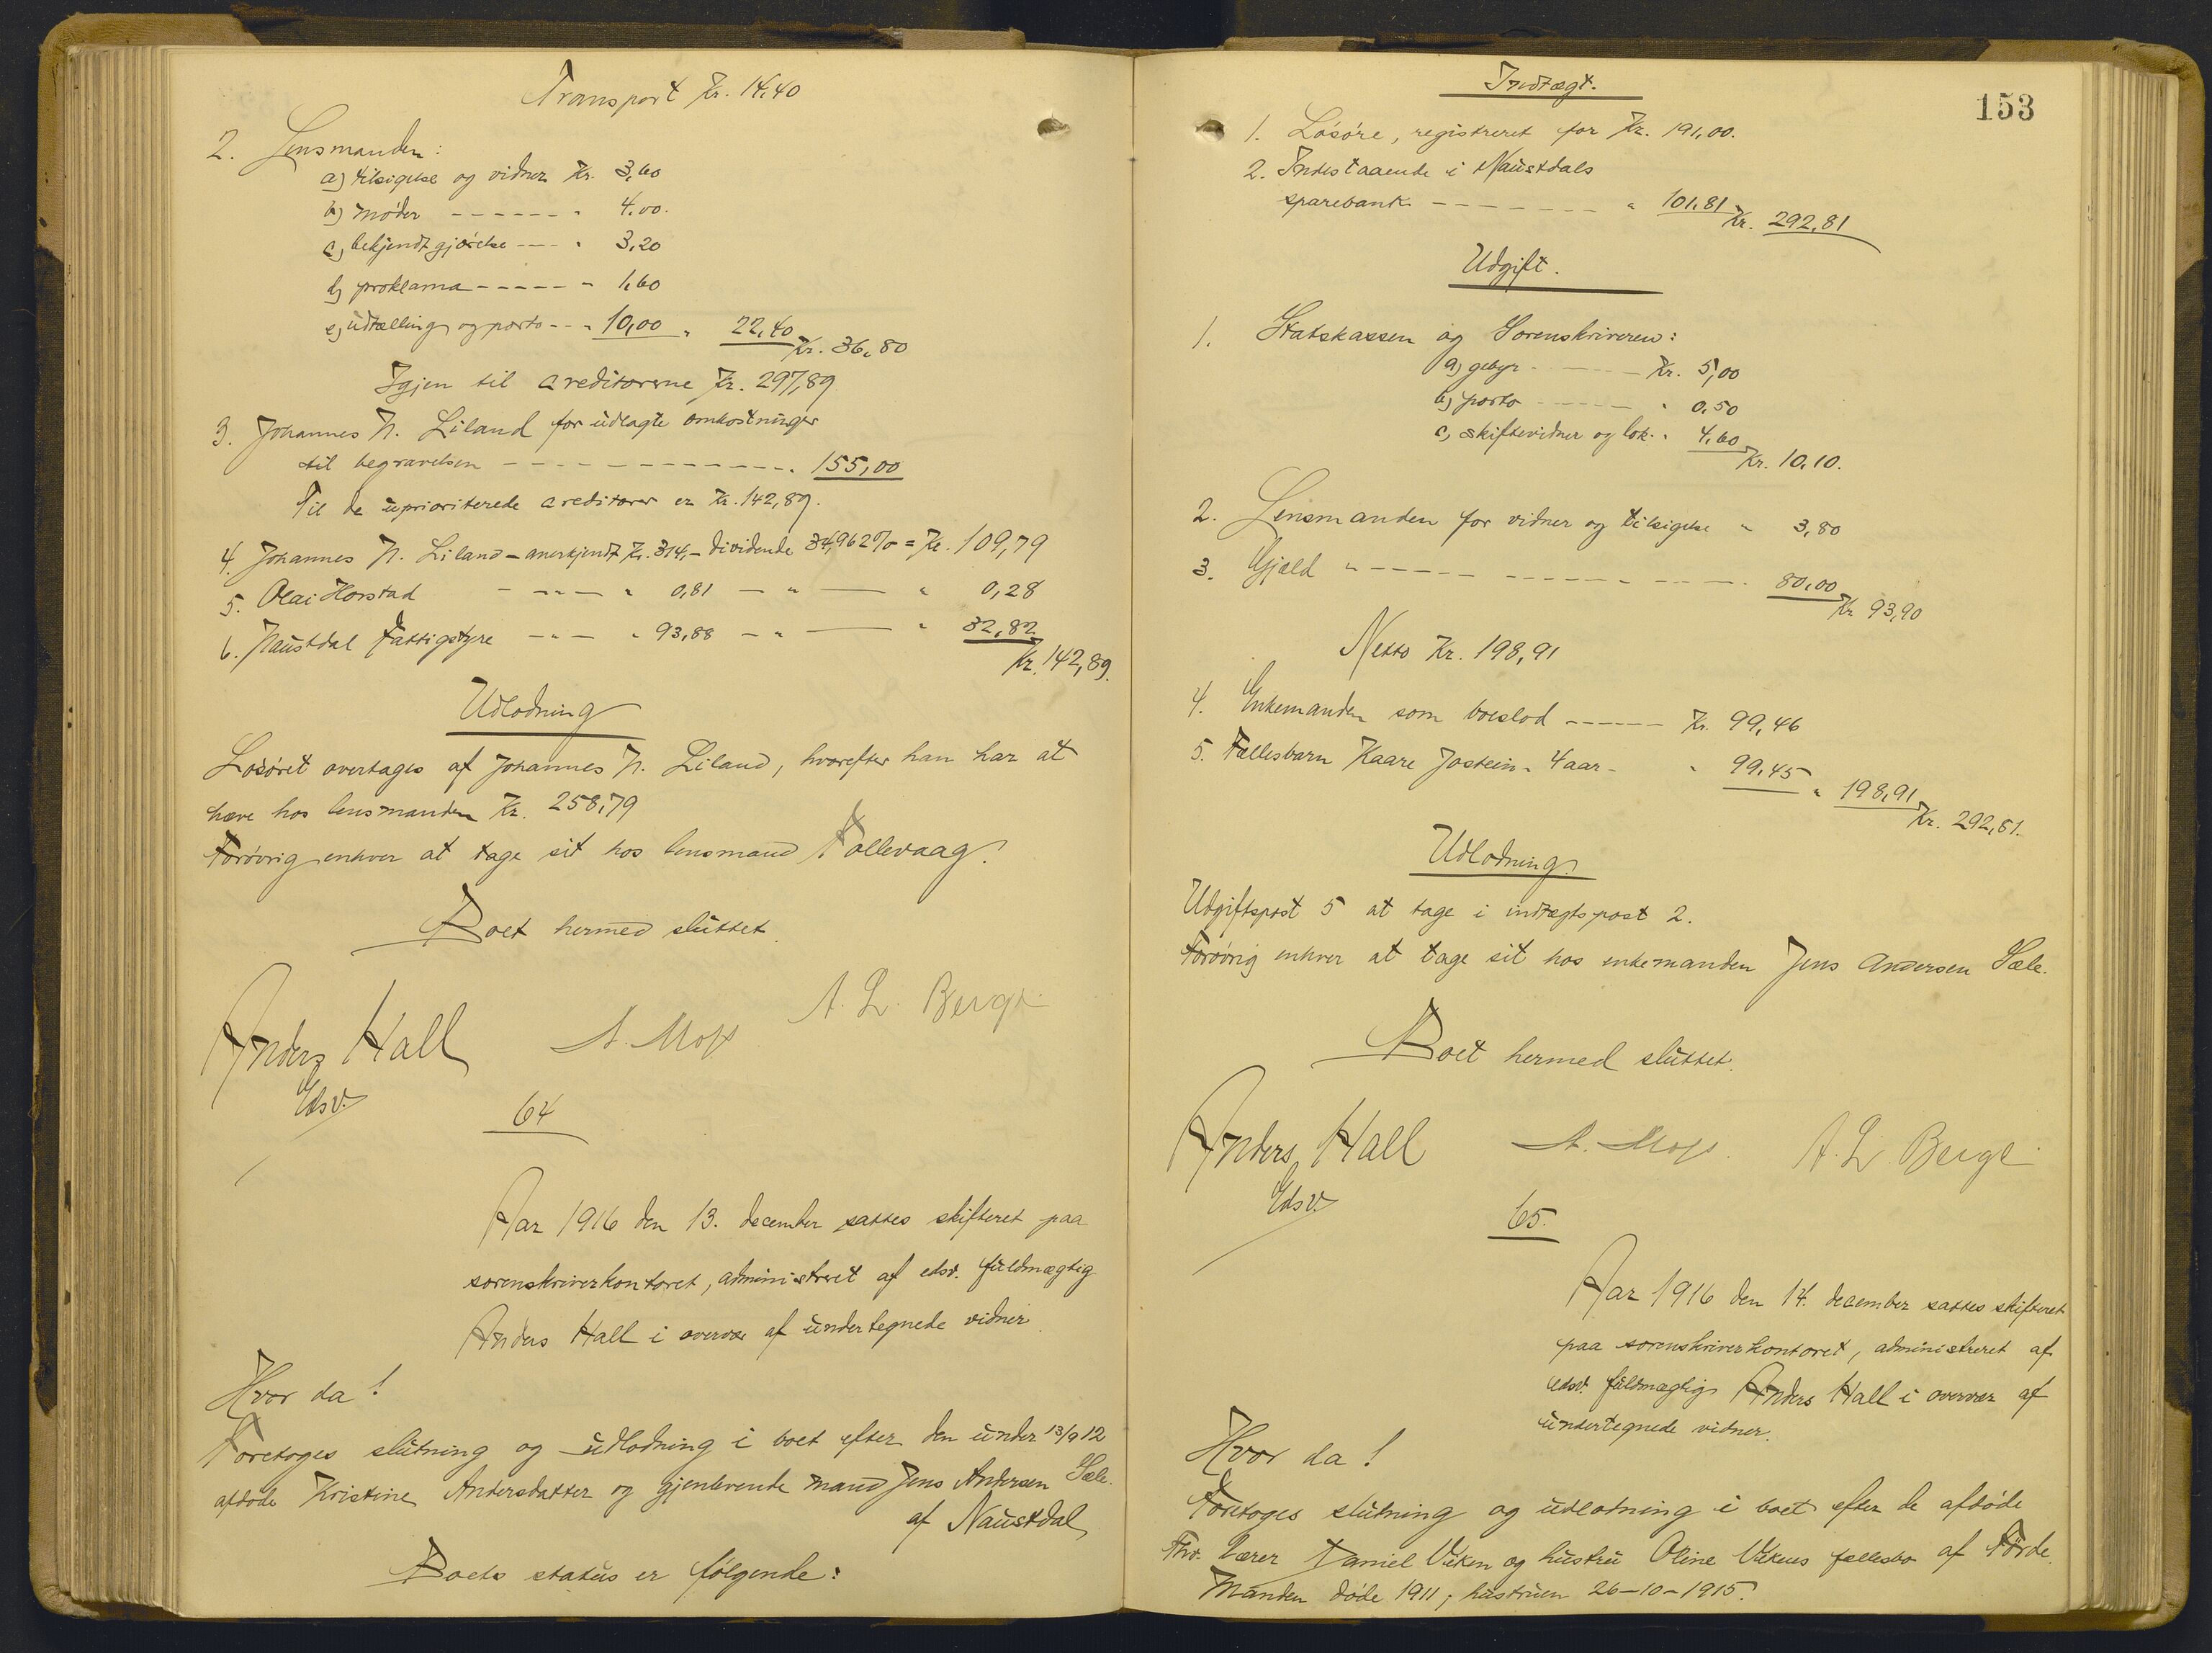 Transport Kr. 14.40
2. Lensmanden:
a) tilsigelse og vidner Kr. 3,60
b) møder - - - - - - " 4.00.
c) bekjendtgjørelse - - - " 3,20
d) proklama - - - - - " 1.60
e) udtælling og porto - - " 10,00 " 22,40
Kr. 36,80
Igjen til creditorerne Kr. 297,89
3. Johannes N. Liland for udlagte omkostninger
til begravelsen - - - - - - - - - - - - " 155,00
Til de uprioriterede creditorer er Kr. 142,89.
4. Johannes N. Liland - anerkjendt Kr. 314,- dividende 34,962% = Kr. 109,79
5. Olai Horstad - - " - " 0,81 - " - " 0,28
6. Naustdal Fattigstyre - " - " 93,88 - " - " 32,82
Kr. 142,89.
Udlodning
Løsøret overtages af Johannes N. Liland, hvorefter han har at
hæve hos lensmanden Kr. 258,79
Forøvrig enhver at tage sit hos lensmand Tollevaag.
Boet hermed sluttet.
Anders Hall A. Moss A. L. Berge
Edsv.
64
Aar 1916 den 13. december sattes skifteret paa
sorenskriverkontoret, administreret af edsv. fuldmægtig
Anders Hall i overvær af undertegnede vidner.
Hvor da!
Foretoges slutning og udlodning i boet efter den under 13/9 12
afdøde Kristine Andersdatter og gjenlevende mand Jens Andersen Sæle
af Naustdal
Boets status er følgende:
153
Indtægt.
1. Løsøre, registreret for Kr. 191,00.
2. Indestaaende i Naustdals
sparebank - - - - - - - - " 101,81
Kr. 292,81
Udgift.
1. Statskassen og Sorenskriveren:
a) gebyr - - - - Kr. 5,00
b) porto - - - - - " 0,50
c) skiftevidner og lok. " 4,60
Kr. 10,10.
2. Lensmanden for vidner og tilsigelse " 3,80
3. Gjæld " - - - - - - - - - - - - 80,00
Kr 93,90
Netto Kr. 198,91
4. Enkemanden som boeslod - - - - - - Kr. 99,46
5. Fællesbarn Kaare Jostein - 4 aar - " 99,45 " 198,91
Kr. 292,81.
Udlodning.
Udgiftspost 5 at tage i indtægtspost 2.
Forøvrig enhver at tage sit hos enkemanden Jens Andersen Sæle.
Boet hermed sluttet.
Anders Hall A. Moss. A. L. Berge
Edsv.
65.
Aar 1916 den 14. december sattes skifteret
paa sorenskriverkontoret, administreret af
edsv. fuldmægtig Anders Hall i overvær af
undertegnede vidner.
Hvor da!
Foretoges slutning og udlodning i boet efter de afdøde
Fhv. lærer Daniel Viken og hustru Oline Vikens fællesbo af Førde.
Manden døde 1911; hustruen 26-10-1915.